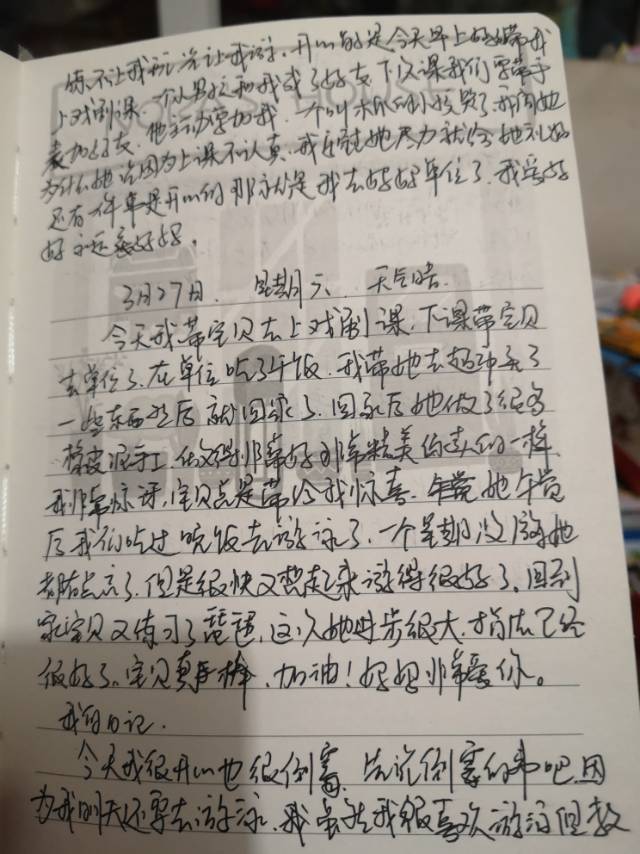 练不让我玩 光让我游，开心的是今天早上妈妈带我
上戏剧课，一个小男孩和我成了好友 下次课我们要带手
表加好友，他主动要加我，一个叫木木的小孩哭了 我问她
为什么她说因为上课不认真，我安慰她
还有一件事是开心的那就是我去妈妈单位了，我爱妈
妈 永远爱妈妈。
3月27日， 星期六， 天气晴
今天我带宝贝去上戏剧课，下课带宝贝
去单位了，在单位吃了午饭，我带她去超市买了
一些东西然后就回家了，回家后她做了很多
橡皮泥手工，做得非常好非常精美像真的一样，
我非常惊讶，宝贝总是带给我惊喜，她午觉
后我们吃过晚饭去游泳了，一个星期没游她
都有点忘了，但是很快又想起来游得很好了，回到
家宝贝又练习了琵琶，这次她进步很大，指法已经
很好了，宝贝真棒，加油！妈妈非常爱你。
我的日记，
今天我很开心也很倒霉，先说倒霉的事吧，因
为我明天还要去游泳，我虽然我很喜欢游泳但教
KOFA'S HOUSE